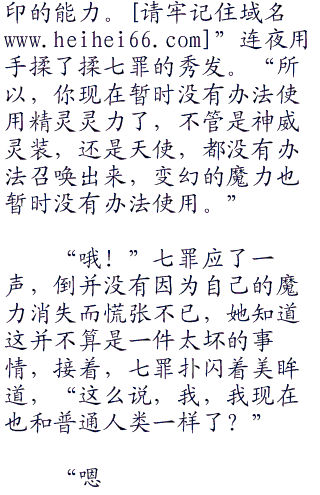 印的能力。[请牢记住域名
www.heihei66.com]”连夜用
手揉了揉七罪的秀发。“所
以，你现在暂时没有办法使
用精灵灵力了，不管是神威
灵装，还是天使，都没有办
法召唤出来，变幻的魔力也
暂时没有办法使用。”
“哦！”七罪应了一
声，倒并没有因为自己的魔
力消失而慌张不已，她知道
这并不算是一件太坏的事
情，接着，七罪扑闪着美眸
道，“这么说，我，我现在
也和普通人类一样了？”
“嗯